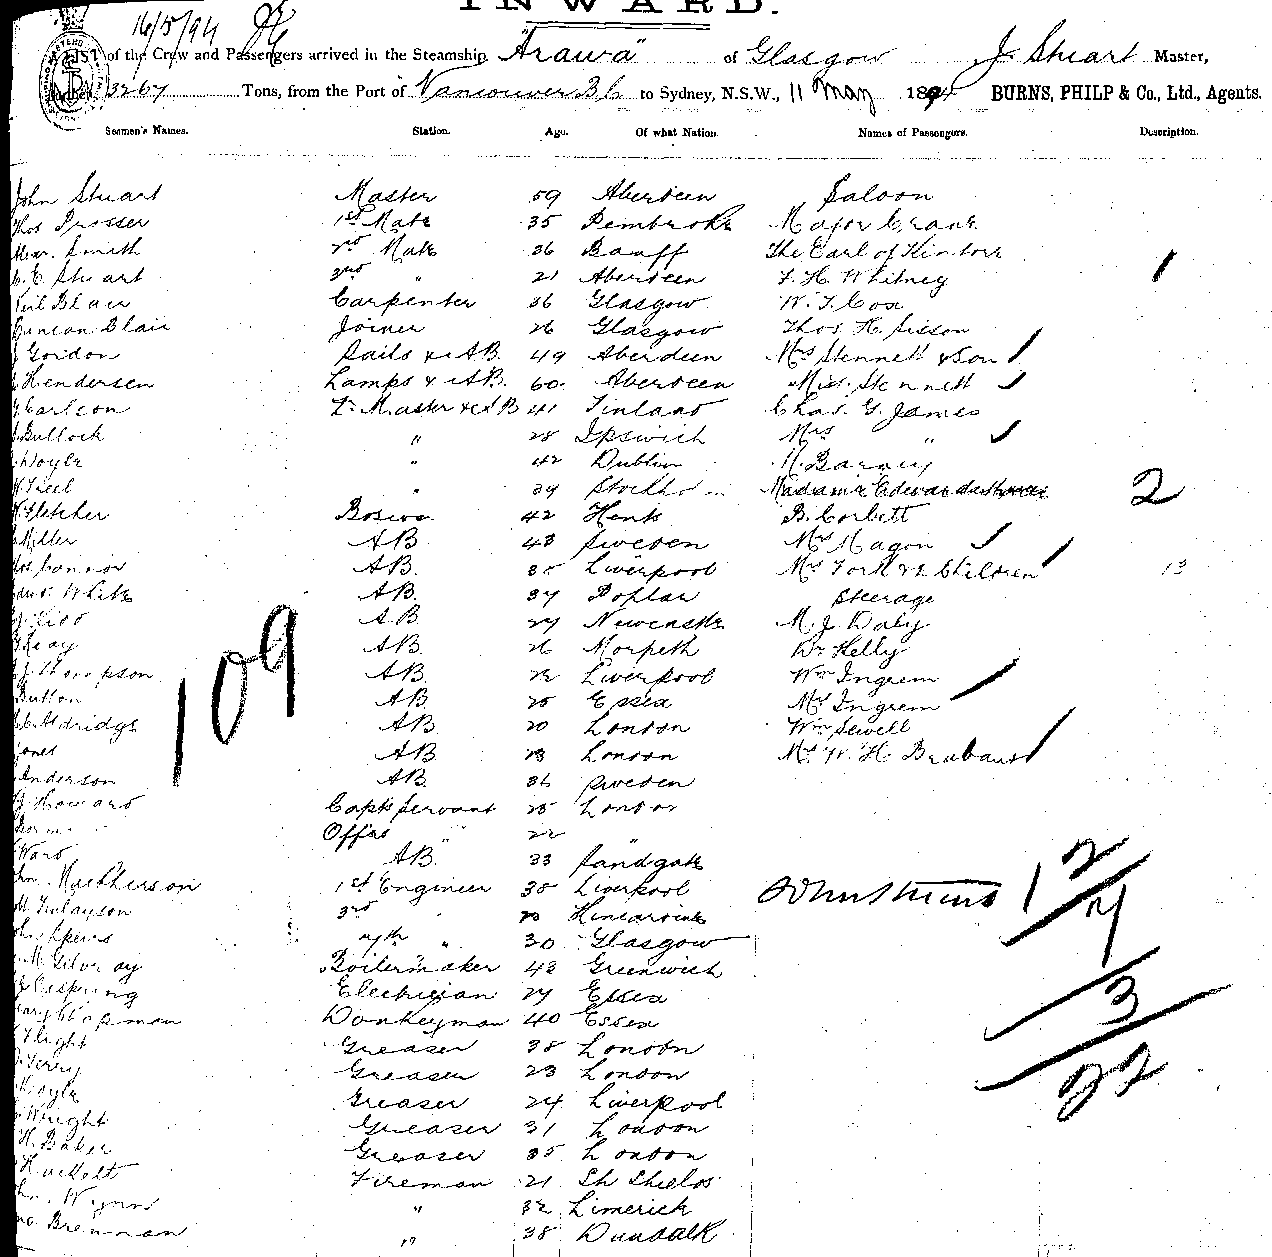 INWARD.
16/5/94
LIST of the Crew and Passengers arrived in the Steamship "Arawa" of Glasgow J. Stuart Master,
3267 Tons, from the Port of Vancouver B.C. to Sydney, N.S.W., 11 May 1894 BURNS, PHILP & Co., Ltd., Agents.
Seamen's Names. Station. Age. Of what Nation. Names of Passengers. Description.
John Stuart Master 59 Aberdeen Saloon
Thos Prosser 1st Mate 35 Pembroke Major Crane
Smith 2nd Mate 36 Banff The Earl of Kintore 1
Stuart 3rd " 21 Aberdeen F. H. Whitney
Neil Blair Carpenter 36 Glasgow W. T. Cox
Duncan Blair Joiner 26 Glasgow Thos. H. Sisson
Gordon Sails & AB. 49 Aberdeen Mrs Stennett & Son
Hendersen Lamps & AB. 60 Aberdeen Miss. Stennett
Carlson Qr Master & AB 41 Finland Chas. G. James
Bullock " 28 Ipswich Mrs "
Doyle " 42 Dublin
" 39 Madame 2
Fletcher 42 B. Corbett
Miller AB 43 Sweden Mrs Magon
Connor AB. 35 Liverpool Mrs York & 2 Children 13
White AB. 37 Poplar Steerage
AB. 27 Newcastle M. J. Daly
AB. 26 Morpeth Dr Kelly
Thompson AB. Liverpool Wm Ingrem
Button AB. 25 Essex Mrs Ingrem
Aldridge AB. 20 London Wm Sewell
Jones AB. London Mrs W. H. Brabant
Anderson AB. 36 Sweden
Howard Capts Servant 25 London
Offrs " 22 "
Ward AB. 33 Sandgate
109
MacPherson 1st Engineer 38 Liverpool 1 2
Finlayson 3rd " 7
7th " 30 Glasgow
McGilvray Boilermaker 43 Greenwich
Electrician 27 Essex 3
Chapman Donkeyman 40 Essex
Flight Greaser 38 London
Terry Greaser 23 London 22
Doyle Greaser 24 Liverpool
Wright Greaser 31 London
H. Baker Greaser 35 London
Hackett Fireman 21 Sh Shields
Wynn " 32 Limerick
Brennan " 38 Dundalk